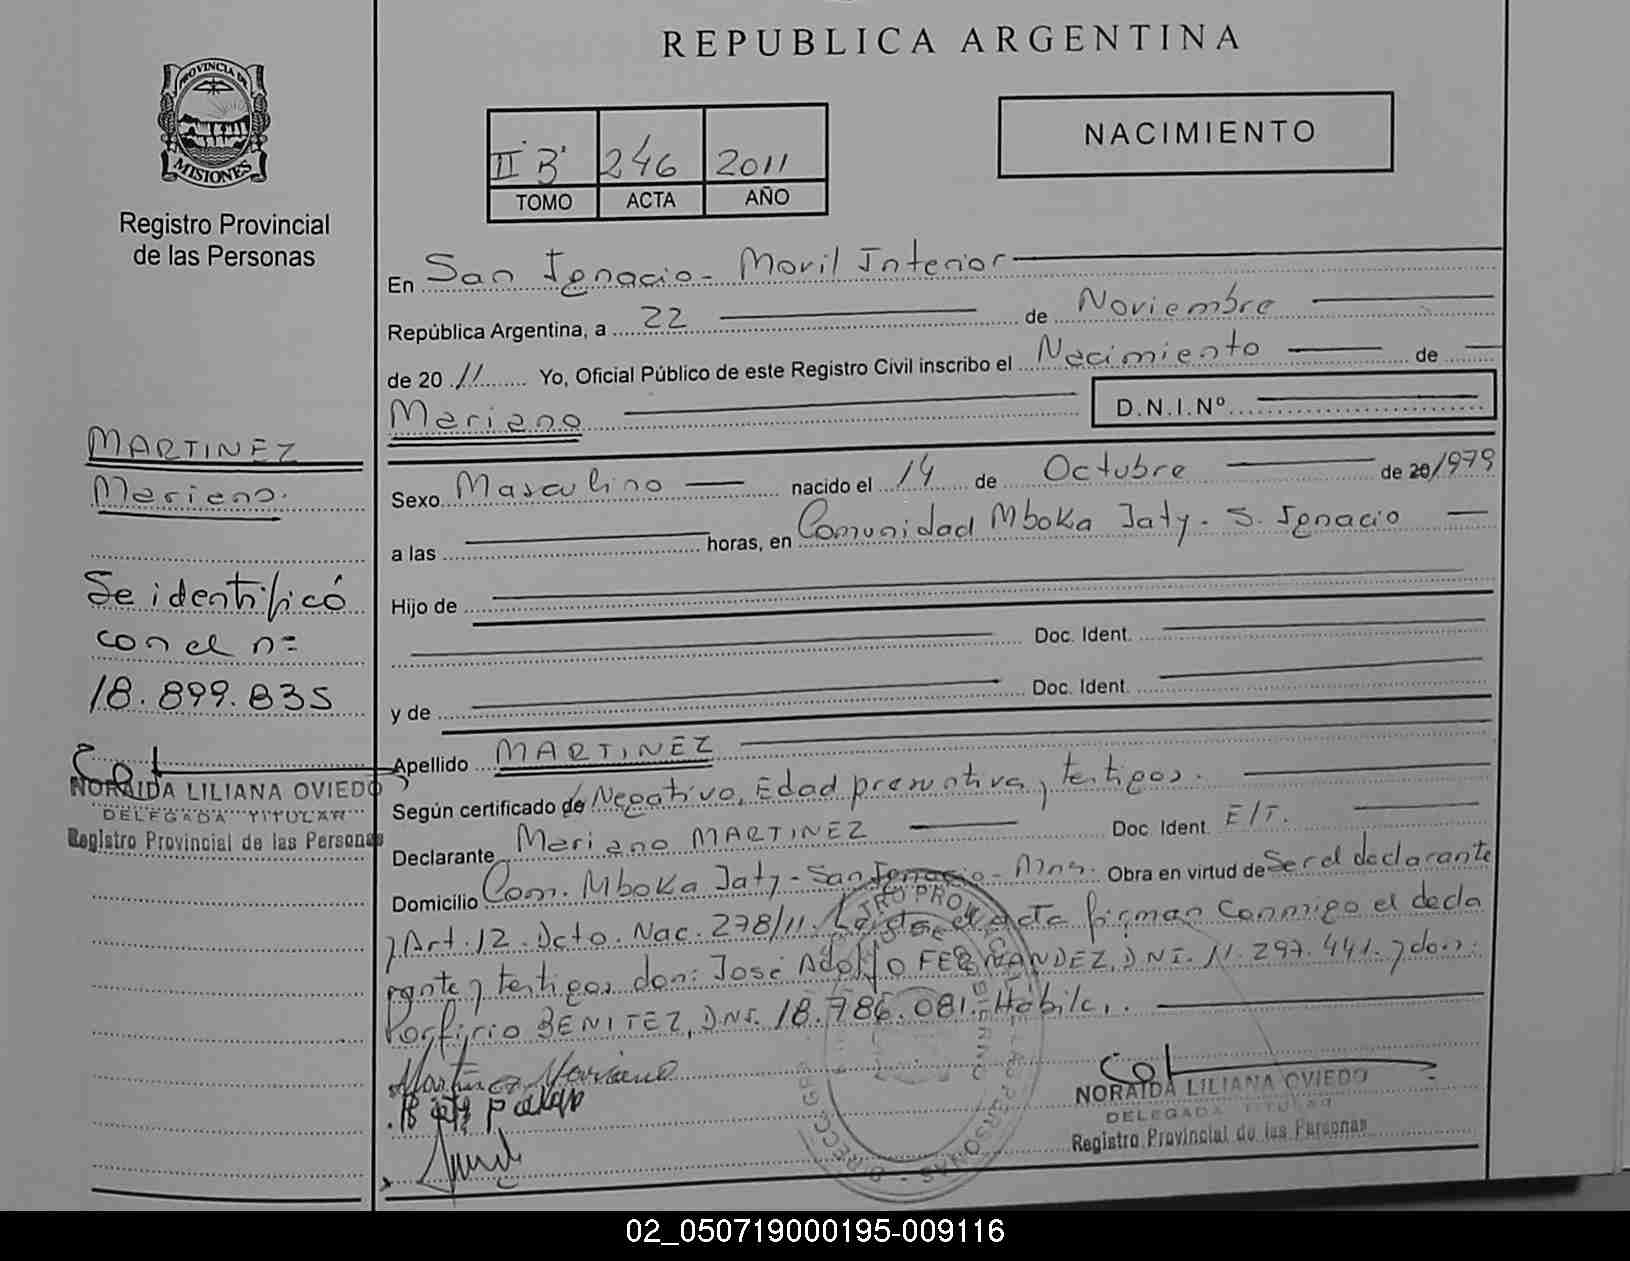 REPUBLICA ARGENTINA
PROVINCIA DE
MISIONES
Registro Provincial
de las Personas
II "B" 246 2011
TOMO ACTA AÑO
NACIMIENTO
En San Ignacio - Movil Interior
República Argentina, a 22 de Noviembre
de 20 11 Yo, Oficial Público de este Registro Civil inscribo el Nacimiento de
Mariano
D.N.I.Nº
Sexo Masculino nacido el 14 de Octubre de 20/979
a las horas, en Comunidad Mboka Jaty - S. Ignacio
Hijo de
Doc. Ident.
y de Doc. Ident.
Apellido MARTINEZ
Según certificado de Negativo, Edad presuntiva y testigos.
Declarante Mariano MARTINEZ Doc. Ident. E/T.
Domicilio Com. Mboka Jaty - San Ignacio - Mns. Obra en virtud de Ser el declarante
y Art. 12. Dcto. Nac. 278/11. Leida el acta firman conmigo el decla
rante y testigos don: José Adolfo FERNANDEZ, DNI. 11.297.441. y don:
Porfirio BENITEZ, DNI. 18.786.081. Hábiles.
Martinez Mariano
NORAIDA LILIANA OVIEDO
DELEGADA TITULAR
Registro Provincial de las Personas
MARTINEZ
Mariano.
Se identificó
con el nº
18.899.835
NORAIDA LILIANA OVIEDO
DELEGADA TITULAR
Registro Provincial de las Personas
02_050719000195-009116